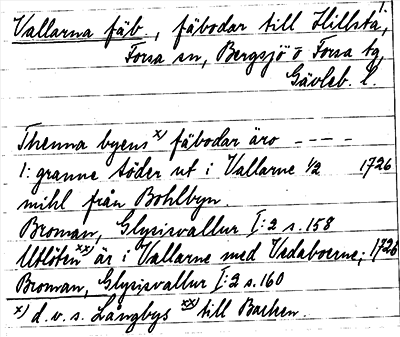 Vallarna fäb., fäbodar till Hillsta,
Forsa sn, Bergsjö o Forsa tg,
Gävleb. l.
Thenna byens x) fäbodar äro - - - -
1: granne söder ut i Vallarne 1/2 1726
mihl från Bohlbyn.
Broman, Glysisvallur I:2 s. 158
Utlöten xx) är i Vallarne med Vedaboerne; 1726
Broman, Glysisvallur I:2 s. 160
x) d.v.s. Långbys xx) till Backen.